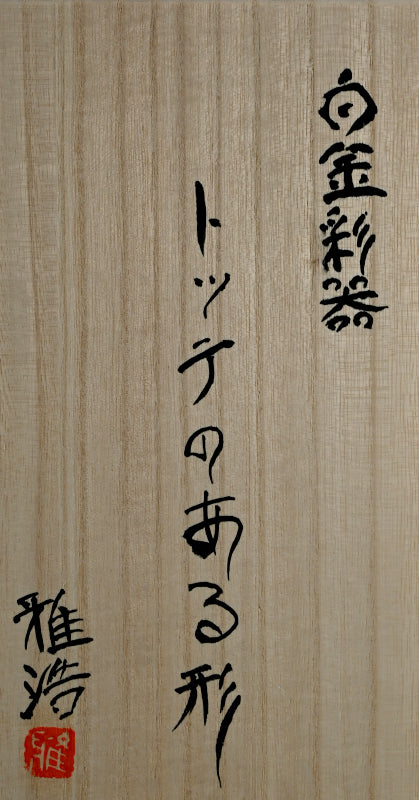 白金彩器
トッテのある形
雅浩
雅